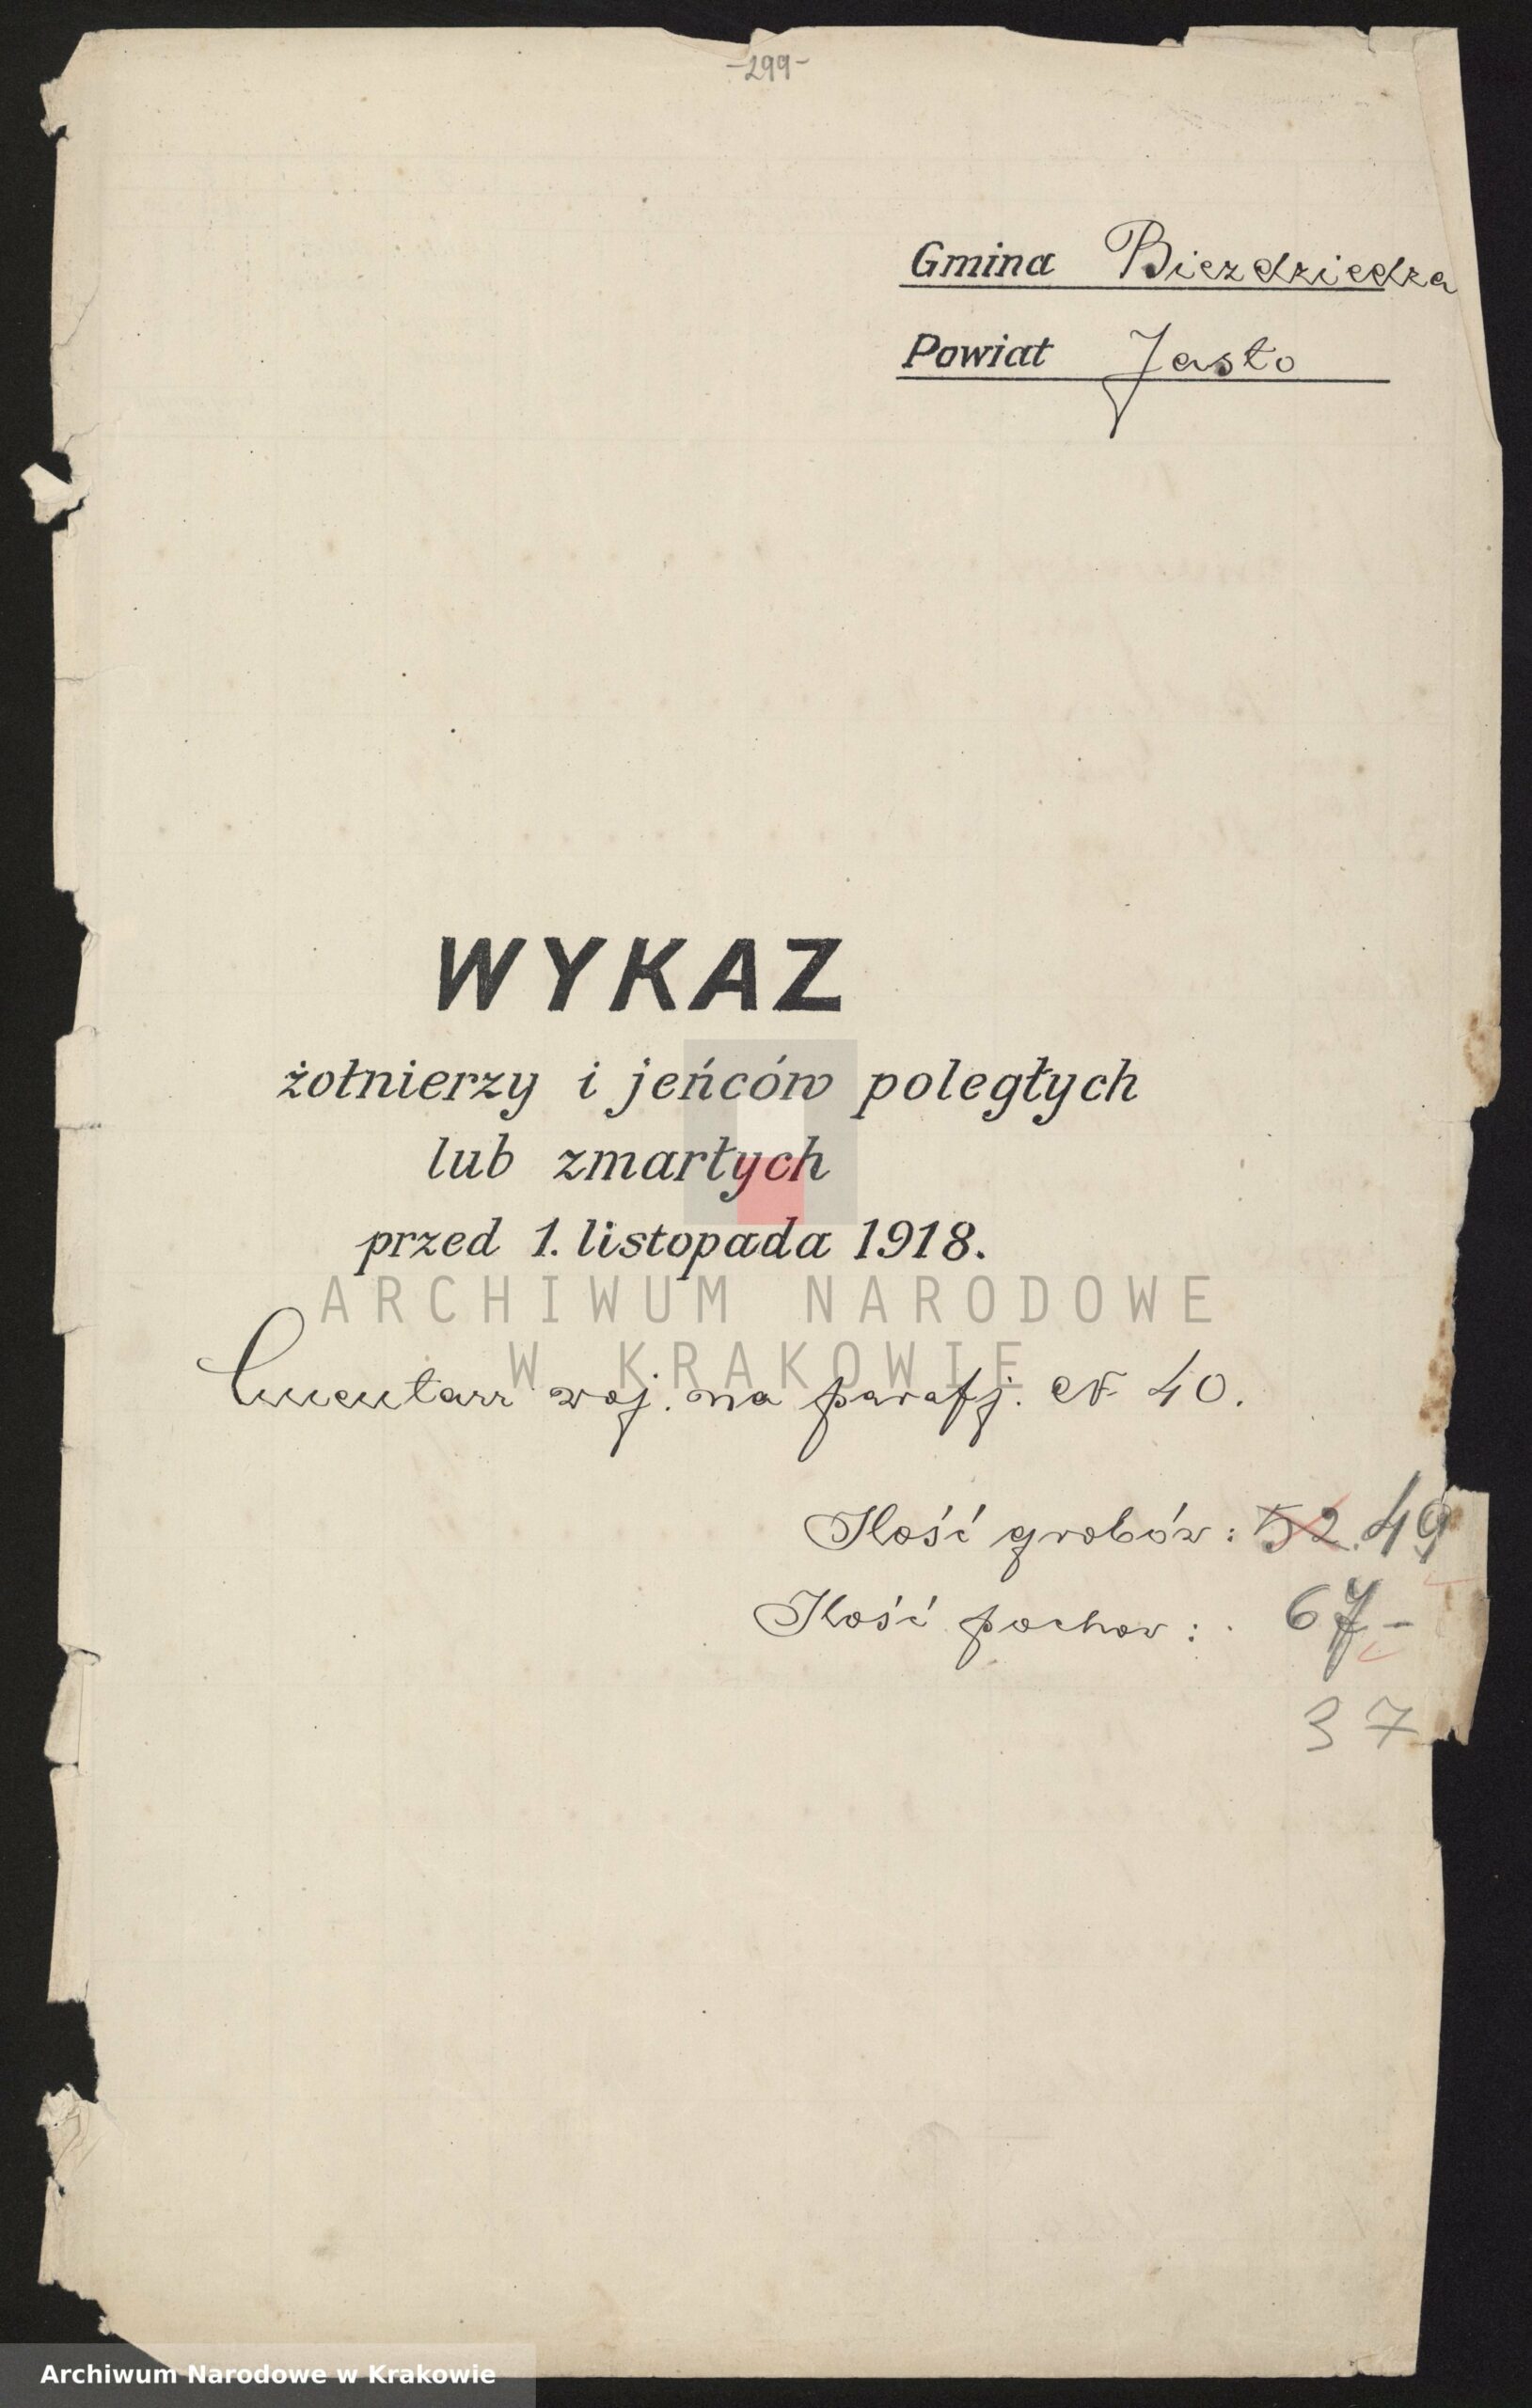 -299-
Gmina Bierzdziedza
Powiat Jasło
WYKAZ
żołnierzy i jeńców poległych
lub zmarłych
przed 1. listopada 1918.
ARCHIWUM NARODOWE
W KRAKOWIE
Cmentarz woj. na parafj. N 40.
Ilość grobów: 52. 49
Ilość pochow: 67-
37
Archiwum Narodowe w Krakowie